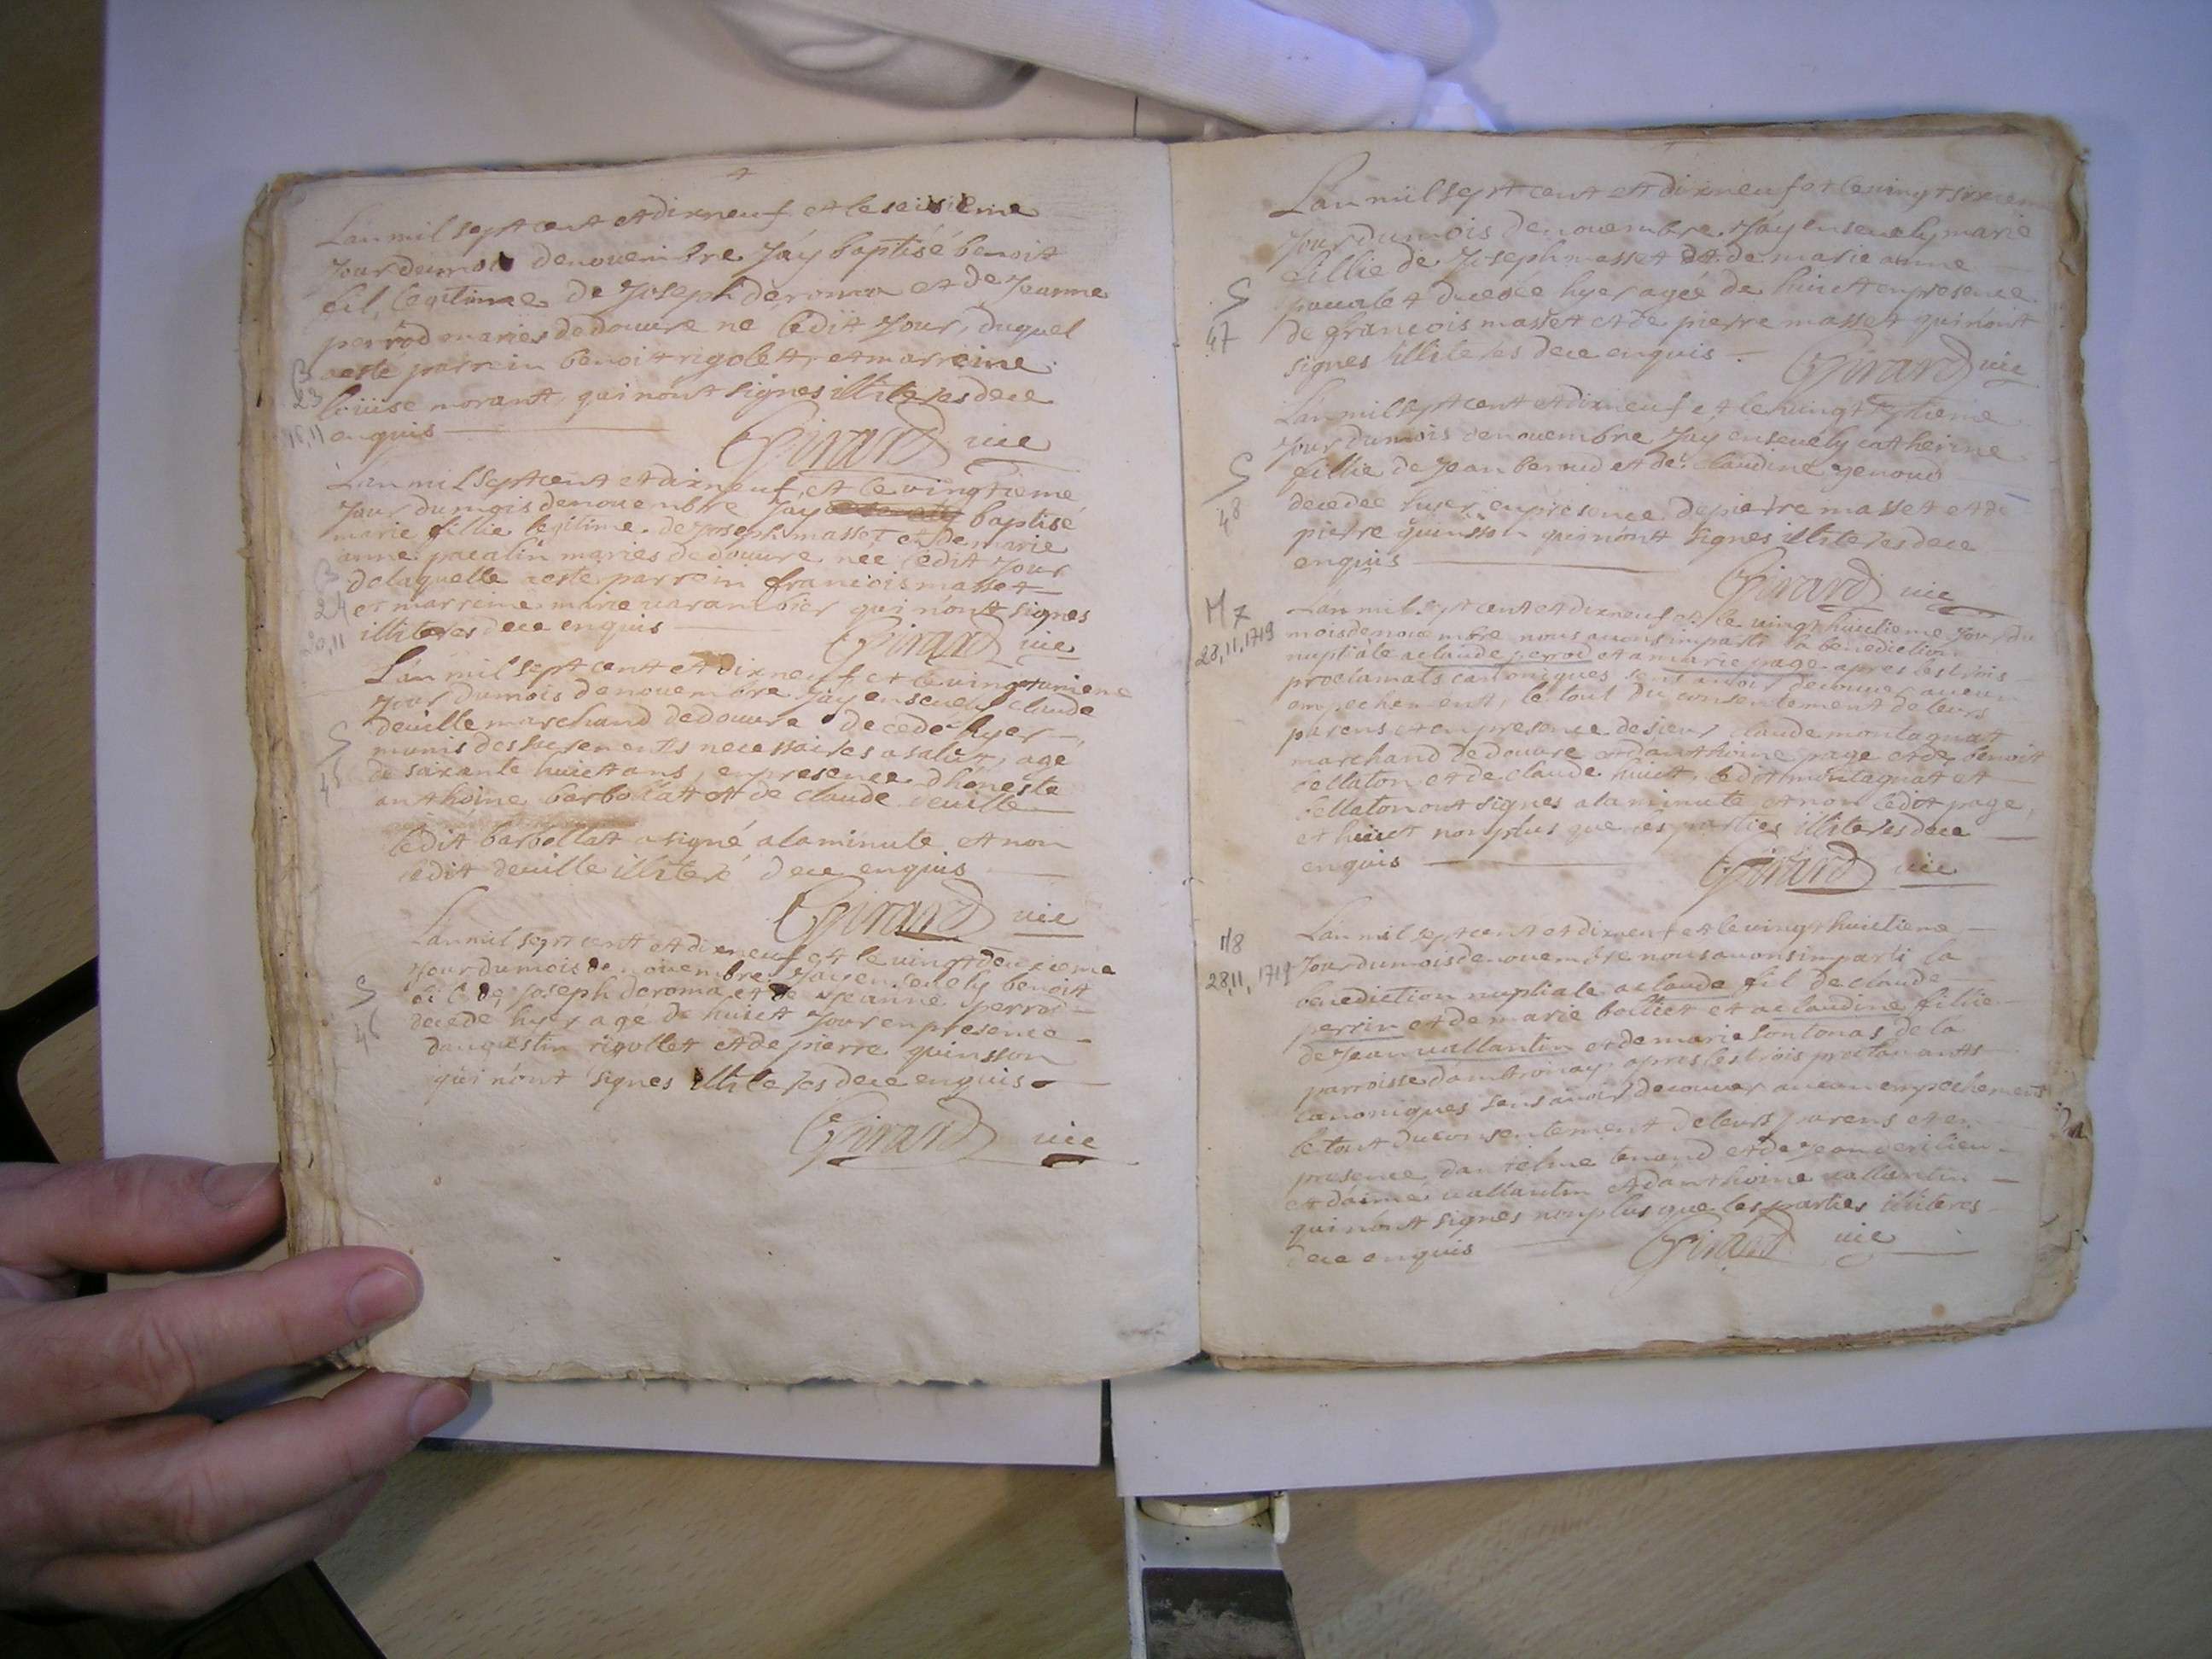 Lan mil sept cent et dixneuf et le seisieme
Jour du mois denouembre Jáy baptisé benoit
fil, legitime de Joseph deroma et de Jeanne
perrod mariés dedouure né ledit Jour, duquel
aesté parrein benoit rigolet, et marreine
loüise morant, qui nont signes illiteres dece
enquis
Girard vic
B
23
16,11
Lan mil sept cent et dixneuf, et le vingtieme
Jour du mois denouembre Jay baptisé
marie fillie legitime de Joseph masset et de marie
anne pacalin mariés dedouure née ledit Jour
delaquelle aesté parrein francois masset
et marreine marie uarambier qui nont signes
illiteres dece enquis
Girard vic
B
24
20,11
Lan mil sept cent et dixneuf et le vingtunieme
Jour du mois denouembre Jay enseuely claude
deuille marchand dedouure decedé hyer
munis des sacrements necessaires a salut, agé
de soixante huict ans, en presence dhoneste
anthoine barbollat et de claude deuille
ledit barbollat a signé alaminute et non
ledit deuille illiteré dece enquis
Girard vic
S
45
Lan mil sept cent et dixneuf et le vingtdeuxieme
Jour du mois denouembre Jay enseuely benoit
fil de Joseph deroma et de Jeanne perrod
decedé hyer agé de huict Jour en presence
daugustin rigollet et de pierre quinsson
qui nont signes illiteres dece enquis
Girard vic
S
46
Lan mil sept cent et dixneuf et le vingt sixiem
Jour du mois denouembre Jáy enseuely marie
fillie de Joseph masset et de marie anne
decedée hyer ageé de huict en presence
de francois masset et de pierre masset qui nont
signes illiteres dece enquis
Girard vic
S
47
Lan mil sept cent et dixneuf et le vingt septieme
Jour du mois denouembre Jay enseuely catherine
fillie de Jean beroud et de claudine genoud
decedée hyer en presence de pierre masset et de
pierre quinsson qui nont signes illiteres dece
enquis
Girard vic
S
48
Lan mil sept cent et dixneuf et le vingt huictieme Jour du
mois denouembre nous auons imparti la benediction
nuptiale a claude perrod et a marie page apres les trois
proclamats canoniques sens auoir decouuer aucun
empechement, le tout du consentement de leurs
parens et en presence desieur claude montagnat
marchand dedouure et danthoine page et de benoit
bellaton et de claude huict, ledit montagnat et
bellaton ont signes alaminute et non ledit page,
et huict non plus que les parties illiteres dece
enquis
Girard vic
M 7
28,11,1719
Lan mil sept cent et dixneuf et le vingt huictieme
Jour du mois denouembre nous auons imparti la
benediction nuptiale a claude fil de claude
perrin et de marie bolliet et a claudine fillie
de Jean uallantin et de marie sontonas de la
parroisse dambronay apres les trois proclamats
canoniques sens auoir decouuer aucun empechement
le tout du consentement de leurs parens et en
presence dantelme tenand et de Jean
et daimé uallantin et danthoine uallantin
qui nont signes non plus que les parties illiteres
dece enquis
Girard vic
M8
28,11,1719